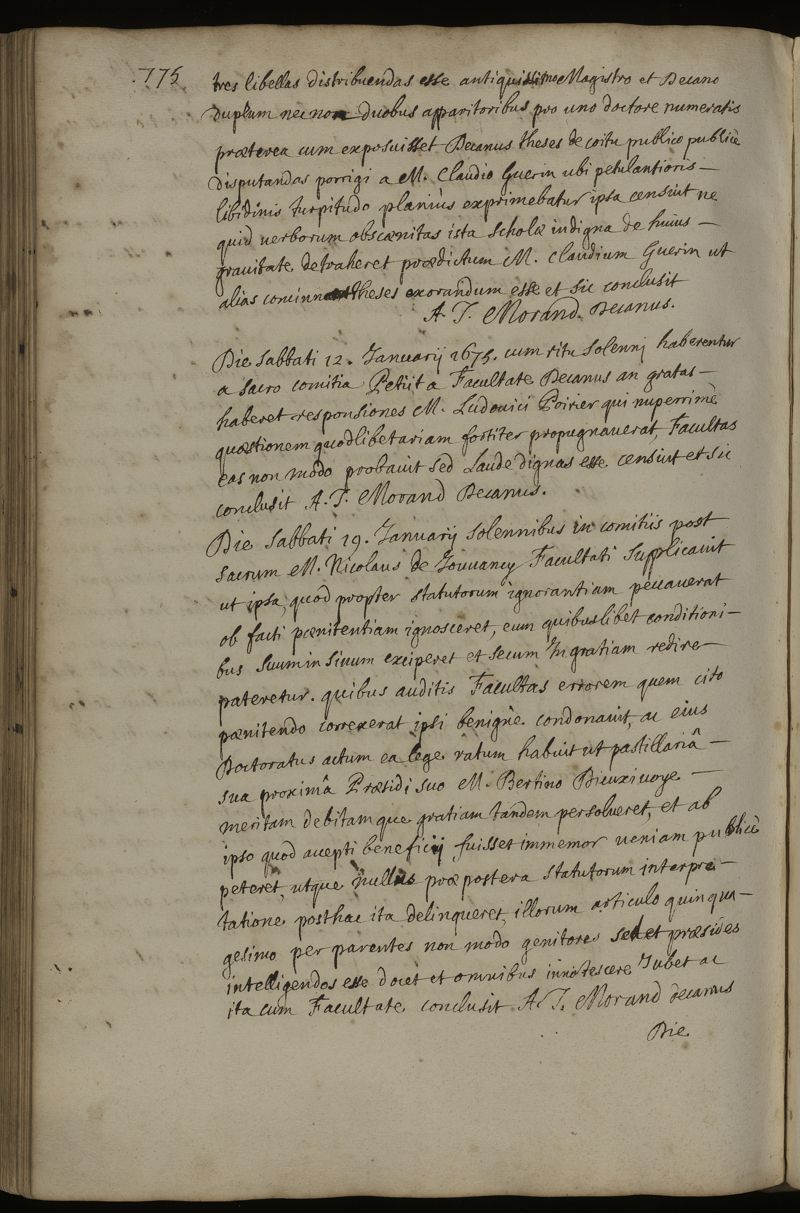 775
tres libellas distribuendas esse antiquissimo Magistro et Decano
duplum nec non duobus apparitoribus pro uno doctore numeratis
præterea cum exposuisset Decanus theses de coitu publico publicè
disputandas porrigi a M. Claudio Guerin ubi petulantioris
libidinis turpitudo planiùs exprimebatur ipsa censuit ne
quid uerborum obscænitas ista scholæ indigna de huius
grauitate detraheret prædictum M. Claudium Guerin ut
alias concinnaret theses exorandum esse et sic conclusit
A. T. Morand. Decanus.
Die Sabbati 12. Januarij 1675. cum ritu solenni haberentur
a sacro comitia Petiit a Facultate Decanus an gratas
haberet responsiones M. Ludouici Poirier qui nuperrimè
quæstionem quodlibetariam fortiter propugnauerat, Facultas
eas non modo probauit sed Laude dignas esse censuit et sic
conclusit A. T. Morand Decanus.
Die Sabbati 19. Januarij solennibus in comitiis post
sacrum M. Nicolaus de Jouuancy Facultati supplicauit
ut ipsa, quod propter statutorum ignorantiam peccauerat
ob facti pænitentiam ignosceret, eum quibuslibet conditioni-
bus suum in sinum exciperet et secum In gratiam redire
pateretur. quibus auditis Facultas errorem quem cito
pænitendo correxerat ipsi benignè condonauit, ac eius
Doctoratus actum ea lege ratum habuit ut pastillariâ
sua proximâ Præsidi suo M. Bertino Dieuxiuoye
meritam debitamque gratiam tandem persolueret, et ab
ipso quod accepti beneficij fuisset immemor ueniam publicè
peteret, utque nullus præpostera statutorum interpre-
tatione posthac ita delinqueret, illorum articulo quinqua-
gesimo per parentes non modo genitores sed et præsides
intelligendos esse docet et omnibus innotescere Jubet ac
ita cum Facultate conclusit A. T. Morand decanus
Die